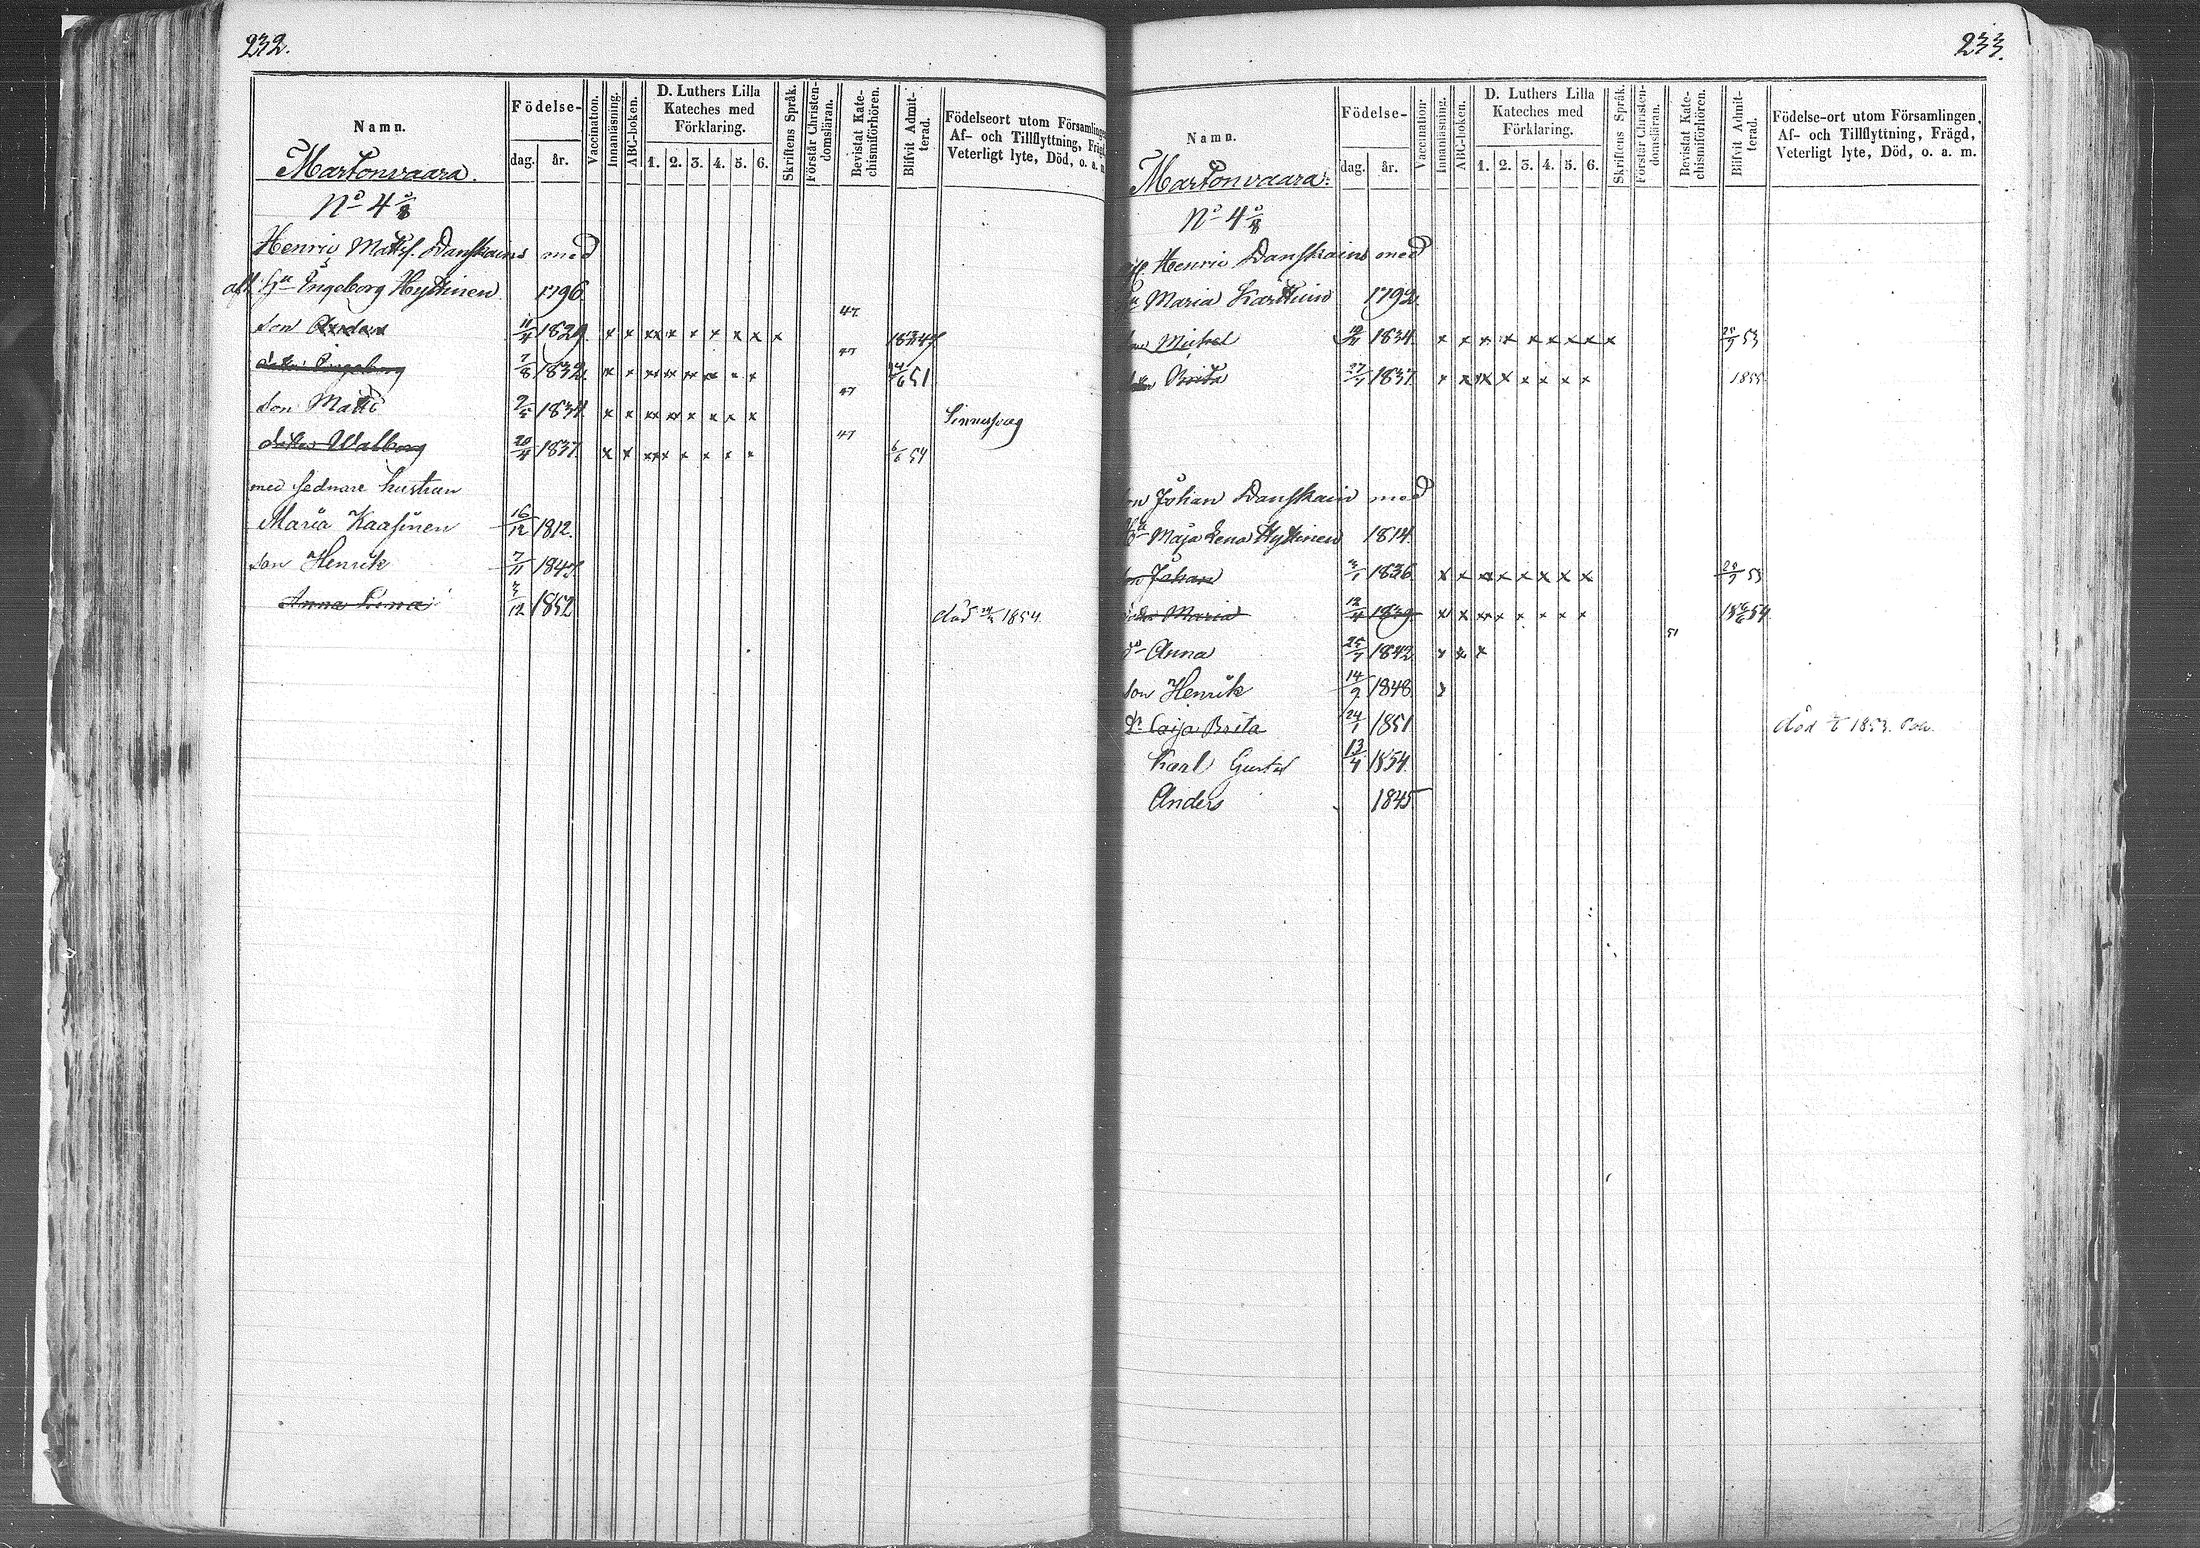 232.
Namn.
Födelse-
dag. år.
Vaccination.
Innanläsning.
ABC-boken.
D. Luthers Lilla
Kateches med
Förklaring.
1. 2. 3. 4. 5. 6.
Skriftens Språk.
Förstår Christen-
domsläran.
Bevistat Kate-
chismiförhören.
Blifvit Admit-
terad.
Födelseort utom Församlingen
Af- och Tillflyttning, Frägd
Veterligt lyte, Död, o. a. m
Martonvaara.
No 4
Henric Matts. Danskain med
Hu Ingeborg Hyttinen 1796
son Anders 11/4 1829. x x xx x x x x x x 47
dotter Ingeborg 7/8 1832. x x xx xx xx x x x 47 51
son Matts 9/5 1834 x x xx xx x x x x 47 Sinnessvag
dotter Walborg 20/4 1837. x x xx x x x x x 47 6/6 54
med sednare hustrun
Maria Kaasinen 16/12 1812.
son Henrik 7/11 1847
Anna Lena 3/12 1852 död 1854.
233.
Namn.
Födelse-
dag. år.
Vaccination
Innanläsning.
ABC-boken.
D. Luthers Lilla
Kateches med
Förklaring.
1. 2. 3. 4. 5. 6.
Skriftens Språk.
Förstår Christen-
domsläran.
Bevistat Kate-
chismiförhören.
Blifvit Admit-
terad.
Födelse-ort utom Församlingen,
Af- och Tillflyttning, Frägd,
Veterligt lyte, Död, o. a. m.
Martonvaara.
No 4
Henric Danskain med
Maria Karttuin 1792
Michel 1834 x x x x x x x x x 53
Brita 27/7 1837 x x xx x x x x x 1855
son Johan Danskain med
Hu Maja Lena Hyttinen 1814
son Johan 3/1 1836 x x xx x x x x x 53
dotter Maria 12/4 1839. x x xx x x x x x 54
do Anna 25/7 1842 x x x 51
son Henrik 14/9 1848
Dr Caisa Brita 24/1 1851 död 1853.
Karl Gustaf 13/4 1854
Anders 1845